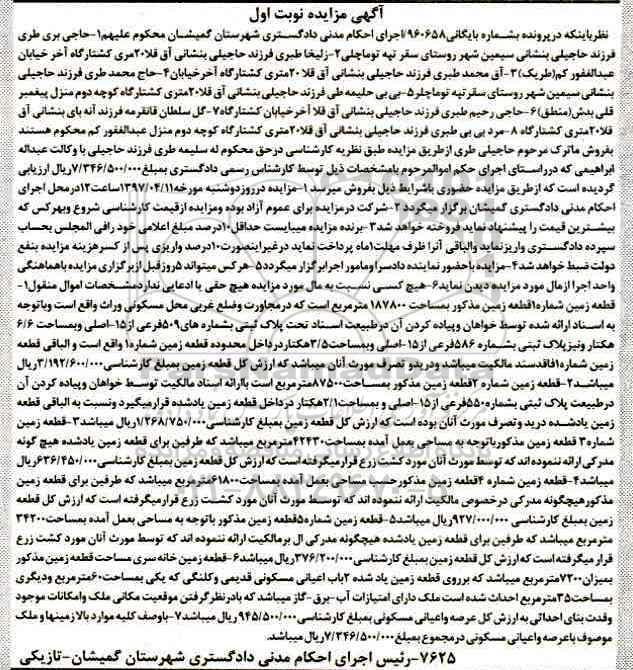 آگهی مزایده نوبت اول
نظربه‌اینکه درپرونده بشماره بایگانی۹۶۰۶۵۸/اجرای احکام مدنی دادگستری شهرستان گمیشان محکوم علیهم۱-حاجی بری طری
فرزند حاجیلی بنشانی سیمین شهر روستای سقر تپه توماچلی۲-زلیخا طبری فرزند حاجیلی بنشانی آق قلا۲۰متری کشتارگاه آخر خیابان
عبدالغفور کم(طریک)۳-آق محمد طبری فرزند حاجیلی بنشانی آق قلا ۲۰متری کشتارگاه آخرخیابان۴-حاج محمد طری فرزند حاجیلی
بنشانی سیمین شهر روستای سقرتپه توماچلر۵-بی بی حلیمه طی فرزند حاجیلی بنشانی آق قلا۲۰متری کشتارگاه کوچه دوم منزل پیغمبر
قلی بدش(منطق)۶-حاجی رحیم طبری فرزند حاجیلی بنشانی آق قلا آخرخیابان کشتارگاه۷-گل سلطان قانقرمه فرزند آنه بای بنشانی آق
قلا۲۰متری کشتارگاه ۸-مرد بی بی طبری فرزند حاجیلی بنشانی آق قلا۲۰متری کشتارگاه کوچه دوم منزل عبدالغفور کم محکوم هستند
بفروش ماترک مرحوم حاجیلی طری ازطریق مزایده طبق نظریه کارشناسی درحق محکوم له سلیمه طری فرزند حاجیلی با وکالت عبداله
ابراهیمی که درراستای اجرای حکم اموالمرحوم بامشخصات ذیل توسط کارشناس رسمی دادگستری بمبلغ۷/۳۴۶/۵۰۰/۰۰۰ریال ارزیابی
گردیده است که ازطریق مزایده حضوری باشرایط ذیل بفروش میرسد ۱-مزایده درروزدوشنبه مورخه۱۳۹۷/۰۴/۱۱ساعت۱۲درمحل اجرای
احکام مدنی دادگستری گمیشان برگزار میگردد ۲-شرکت درمزایده برای عموم آزاد بوده ومزایده ازقیمت کارشناسی شروع وبهرکس که
بیشترین قیمت را پیشنهاد نماید فروخته خواهد شد۳-برنده مزایده میبایست حداقل۱۰درصد مبلغ اعلامی خود رافی المجلس بحساب
سپرده دادگستری واریزنماید والباقی آنرا ظرف مهلت۱ماه پرداخت نماید درغیراینصورت۱۰درصد واریزی پس از کسرهزینه مزایده بنفع
دولت ضبط خواهد شد۴-مزایده باحضور نماینده دادسرا ومامور اجرا برگزار میگردد۵-هرکس میتواند ۵روزقبل ازبرگزاری مزایده باهماهنگی
واحد اجرا ازمال مورد مزایده دیدن نماید۶-هیچ کسی نسبت به مال مورد مزایده هیچ حقی یا ادعایی نداردمشخصات اموال منقول۱-
قطعه زمین شماره۱قطعه زمین مذکور بمساحت ۱۸۷۸۰۰ مترمربع است که درمجاورت وضلع غربی محل مسکونی وراث واقع است وباتوجه
به اسناد ارائه شده توسط خواهان وپیاده کردن آن درطبیعت اسناد تحت پلاک ثبتی بشماره های۵۰۹فرعی از۱۵-اصلی وبمساحت ۶/۶
هکتار ونیزپلاک ثبتی بشماره ۵۸۶فرعی از۱۵-اصلی وبمساحت۳/۵هکتاردرداخل محدوده قطعه زمین شماره۱ واقع است و الباقی قطعه
زمین شماره۱فاقدسند مالکیت میباشد ودریدو تصرف مورث آنان میباشد که ارزش کل قطعه زمین بمبلغ کارشناسی۳/۱۹۲/۶۰۰/۰۰۰ریال
میباشد۲-قطعه زمین شماره ۲قطعه زمین مذکور بمساحت۸۷۵۰۰مترمربع است باارائه اسناد مالکیت توسط خواهان وپیاده کردن آن
درطبیعت پلاک ثبتی بشماره۵۵۰فرعی از۱۵-اصلی و بمساحت۲/۱هکتار درداخل قطعه زمین یادشده قرارمیگیرد ونسبت به الباقی قطعه
زمین یادشده درید وتصرف مورث آنان بوده است که ارزش کل قطعه زمین بمبلغ کارشناسی۱/۲۶۸/۷۵۰/۰۰۰ریال میباشد۳-قطعه زمین
شماره۳ قطعه زمین مذکورباتوجه به مساحی بعمل آمده بمساحت۴۲۴۳۰مترمربع میباشد که طرفین برای قطعه زمین یادشده هیچ گونه
مدرکی ارائه ننموده اند که توسط مورث آنان مورد کشت زرع قرارمیگرفته است که ارزش کل قطعه زمین بمبلغ کارشناسی۶۳۶/۴۵۰/۰۰۰ریال
میباشد۴-قطعه زمین شماره ۴قطعه زمین مذکورحسب مساحی بعمل آمده بمساحت۶۱۸۰۰مترمربع میباشد که طرفین برای قطعه زمین
مذکورهیچگونه مدرکی درخصوص مالکیت ارائه ننموده اند که توسط مورث آنان مورد کشت زرع قرارمیگرفته است که ارزش کل قطعه
زمین بمبلغ کارشناسی ۹۲۷/۰۰۰/۰۰۰ریال میباشد۵-قطعه زمین شماره۵قطعه زمین مذکور باتوجه به مساحی بعمل آمده بمساحت۳۴۲۰۰
مترمربع میباشد که طرفین برای قطعه زمین یادشده هیچگونه مدرکی ال برمالکیت ارائه ننموده اند که توسط مورث آنان مورد کشت زرع
قرار میگرفته است که ارزش کل قطعه زمین بمبلغ کارشناسی۳۷۶/۲۰۰/۰۰۰ریال میباشد۶-قطعه زمین خانه سری مساحت قطعه زمین مذکور
بمیزان۷۲۰۰مترمربع میباشد که برروی قطعه زمین یاد شده ۲باب اعیانی مسکونی قدیمی وکلنگی که یکی بمساحت۶۰مترمربع ودیگری
بمساحت۳۵مترمربع احداث شده است ملک دارای امتیازات آب-برق-گاز میباشد که بادرنظرگرفتن موقعیت مکانی ملک وامکانات موجود
وقدت بنای احداثی به ارزش کل عرصه واعیانی مسکونی بمبلغ کارشناسی ۹۴۵/۵۰۰/۰۰۰ریال میباشد۷-باوصف کلیه موارد بالا زمینها و ملک
موصوف باعرصه واعیانی مسکونی درمجموع بمبلغ۷/۳۴۶/۵۰۰/۰۰۰ریال میباشد.
۷۶۲۵-رئیس اجرای احکام مدنی دادگستری شهرستان گمیشان-تازیکی